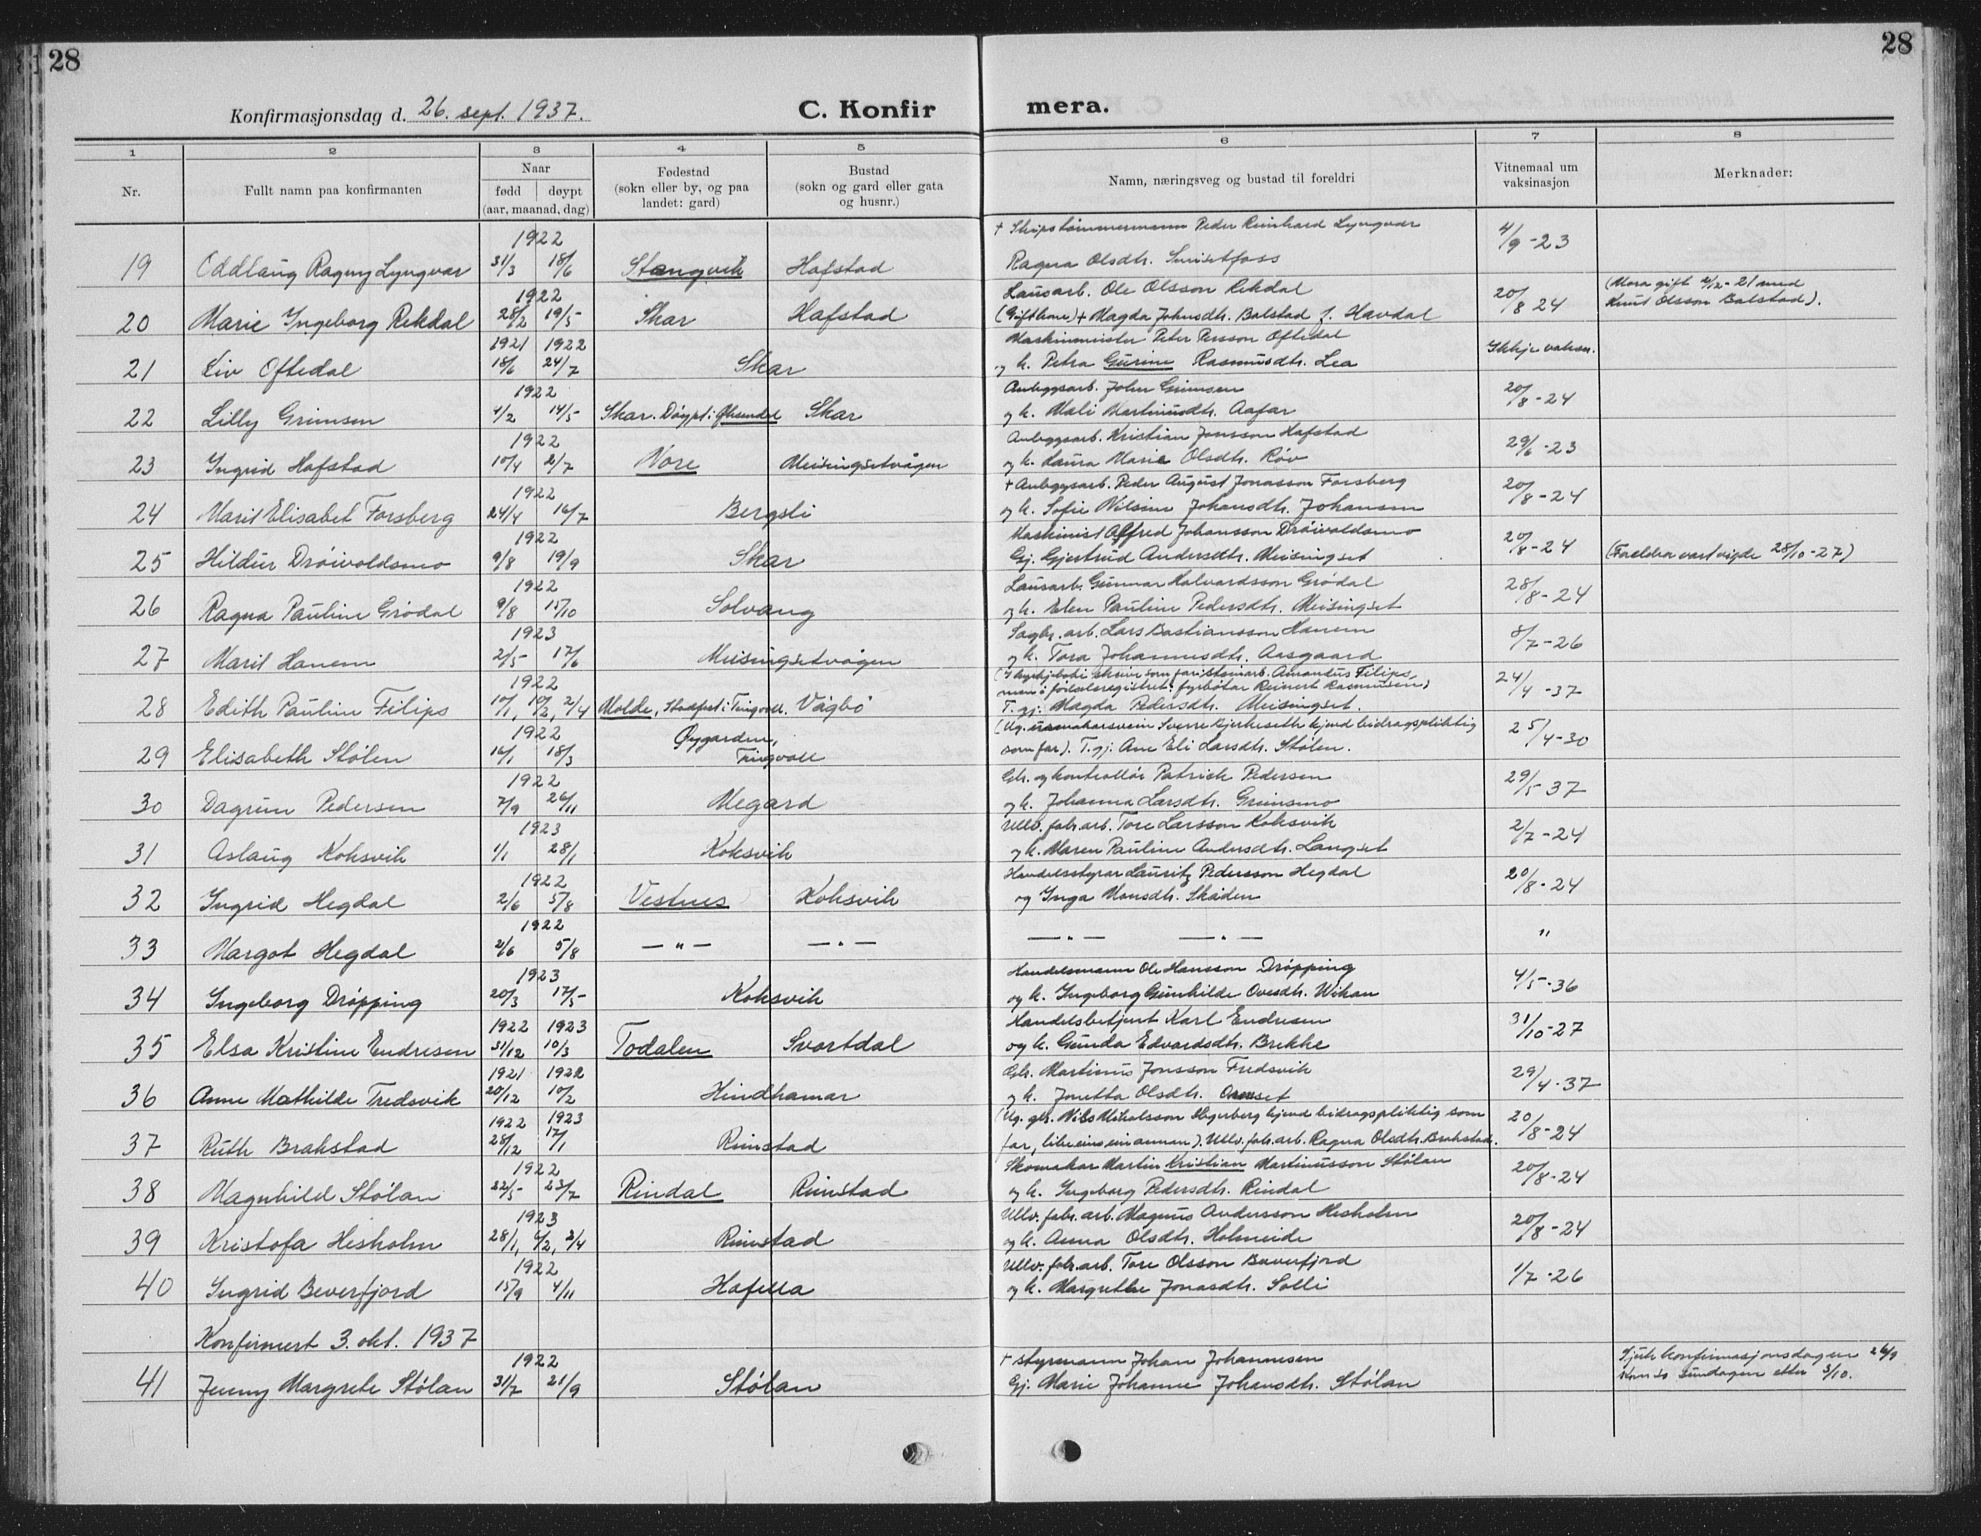 28
28
Konfirmasjonsdag d. 26. sept. 1937.
C. Konfir
mera.
1 2 3 4 5 6 7 8
Nr.
Fullt namn paa konfirmanten
Naar
født døypt
(aar, maanad, dag)
Fødestad
(sokn eller by, og paa
landet: gard)
Bustad
(sokn og gard eller gata
og husnr.)
Namn, næringsveg og bustad til foreldri
Vitnemaal um
vaksinasjon
Merknader:
1922 + Skipstømmermann Peder Reinhard Lyngvær
19 Oddlaug Ragny Lyngvær 31/3 18/6 Stangvik Hafstad Ragna Olsdtr. 4/9-23
1922 Lausarb. Ole Olsson Rekdal (Mora gift 4/12-21 med
20 Marie Ingeborg Rekdal 28/2 19/5 Skar Hafstad + Magda Johnsdtr. Balstad f. Havdal 20/8 24 Knut Olsson Balstad).
1921 1922 Maskinmeister Peter Persson Oftedal
21 Liv Oftedal 18/6 24/7 Skar og k. Petra Gurine Rasmusdtr. Lea Ikkje vaksn.
1922 Anleggsarb. John Grimsen
22 Lilly Grimsen 4/2 14/5 Skar. Døypt i Øksendal Skar og k. Mali Martinusdtr. Aafar 20/8-24
1922 Anleggsarb. Kristian Jonsson Hafstad
23 Ingrid Hafstad 10/4 2/7 Nore Meisingsetvågen og k. Laura Marie Olsdtr. Røv 29/6-23
1922 + Anleggsarb. Peder August Jonasson Forsberg
24 Marit Elisabet Forsberg 24/4 16/7 Bergsli og k. Sofie Nilsine Johansdtr. Johansen 20/8-24
1922 Maskinist Alfred Johansson Drøivoldsmo
25 Hildur Drøivoldsmo 9/8 19/9 Skar Gj. Gjertrud Andersdtr. Meisingset 20/8-24 (Foreldra vart vigde 28/10-27)
1922 Lausarb. Gunnar Halvardsson Grødal
26 Ragna Pauline Grødal 9/8 15/10 Solvang og k. Elen Pauline Pedersdtr. Meisingset 28/8-24
1923 Sagbr. arb. Lars Bastiansson Hanem
27 Marit Hanem 2/5 17/6 Meisingsetvågen og k. Tora Johannesdtr. Aasgaard 8/7-26
1922 Amandus Filips,
men i fødselsregistret: fyrbøtar Reinert Rasmussen)
28 Edith Pauline Filips 10/1, 10/2, 2/4 Molde, Stadfest i Tingvoll. Vågbø T. gj. Magda Pedersdtr. Meisingset. 24/4-37
1922 Øygarden, (Ug. urmakarsvein Sverre Gjerkeseth kjend bidragspliktig
29 Elisabeth Stølen 16/1 18/3 Tingvoll som far). T. gj. Ane Eli Larsdtr. Stølen. 25/4-30
1922 Gbr. og kontrollør Patrick Pedersen
30 Dagrun Pedersen 7/9 26/11 Megard og k. Johanna Larsdtr. Grimsmo 29/5 37
1923 Ullv. fabr. arb. Tore Larsson Koksvik
31 Aslaug Koksvik 1/1 28/1 Koksvik og k. Maren Pauline Andersdtr. Langset 2/7-24
1922 Handelsstyrar Lauritz Pedersson Hegdal
32 Ingrid Hegdal 2/6 5/8 Vestnes Koksvik og Inga Monsdtr. Skåden 20/8-24
1922
33 Margot Hegdal 2/6 5/8 —"— —"— —"— —"— "
1923 Handelsmann Ole Hansson Drøpping
34 Ingeborg Drøpping 20/3 17/5 Koksvik og k. Ingeborg Gunhilde Ovesdtr. Wikan 4/5-36
1922 1923 Handelsbetjent Karl Endresen
35 Elsa Kristine Endresen 31/12 10/3 Todalen Svortdal og k. Gunda Edvardsdtr. Brekke 31/10-27
1921 1922 Gbr. Martinus Jonsson Tredsvik
36 Anne Mathilde Tredsvik 20/12 10/2 Hindhamar og k. Jonetta Olsdtr. 29/4-37
1922 1923 (Ug. gbr. Nils Nikolasson Hegerberg kjend bidragspliktig som
37 Ruth Brakstad 28/12 17/1 Rimstad far, like eins ein annan). Ullv. fabr. arb. Ragna Olsdtr. Brakstad. 20/8-24
1922 Skomakar Martin Kristian Martinusson Stølan
38 Magnhild Stølan 22/5 23/7 Rindal Rimstad og k. Ingeborg Pedersdtr. Rindal 20/8-24
1923 Ullv. fabr. arb. Magnus Andersson Hesholm
39 Kristofa Hesholm 28/1, 4/2, 2/4 Rimstad og k. Anna Olsdtr. Holmeide 20/8-24
1922 Ullv. fabr. arb. Tore Olsson Bæverfjord
40 Ingrid Beverfjord 15/9 4/11 Hafella og k. Margrethe Jonasdtr. Solli 1/7-26
Konfirmert 3. okt. 1937
1922 + styrmann Johan Johannesen Sjuk konfirmasjonsdagen 26/9
41 Jenny Margrete Stølan 31/7 21/9 Stølan Gj. Marie Johanne Johansdtr. Stølan kom so sundagen etter 3/10.